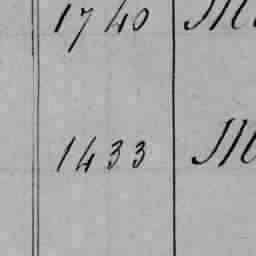 1740 M
1433 M